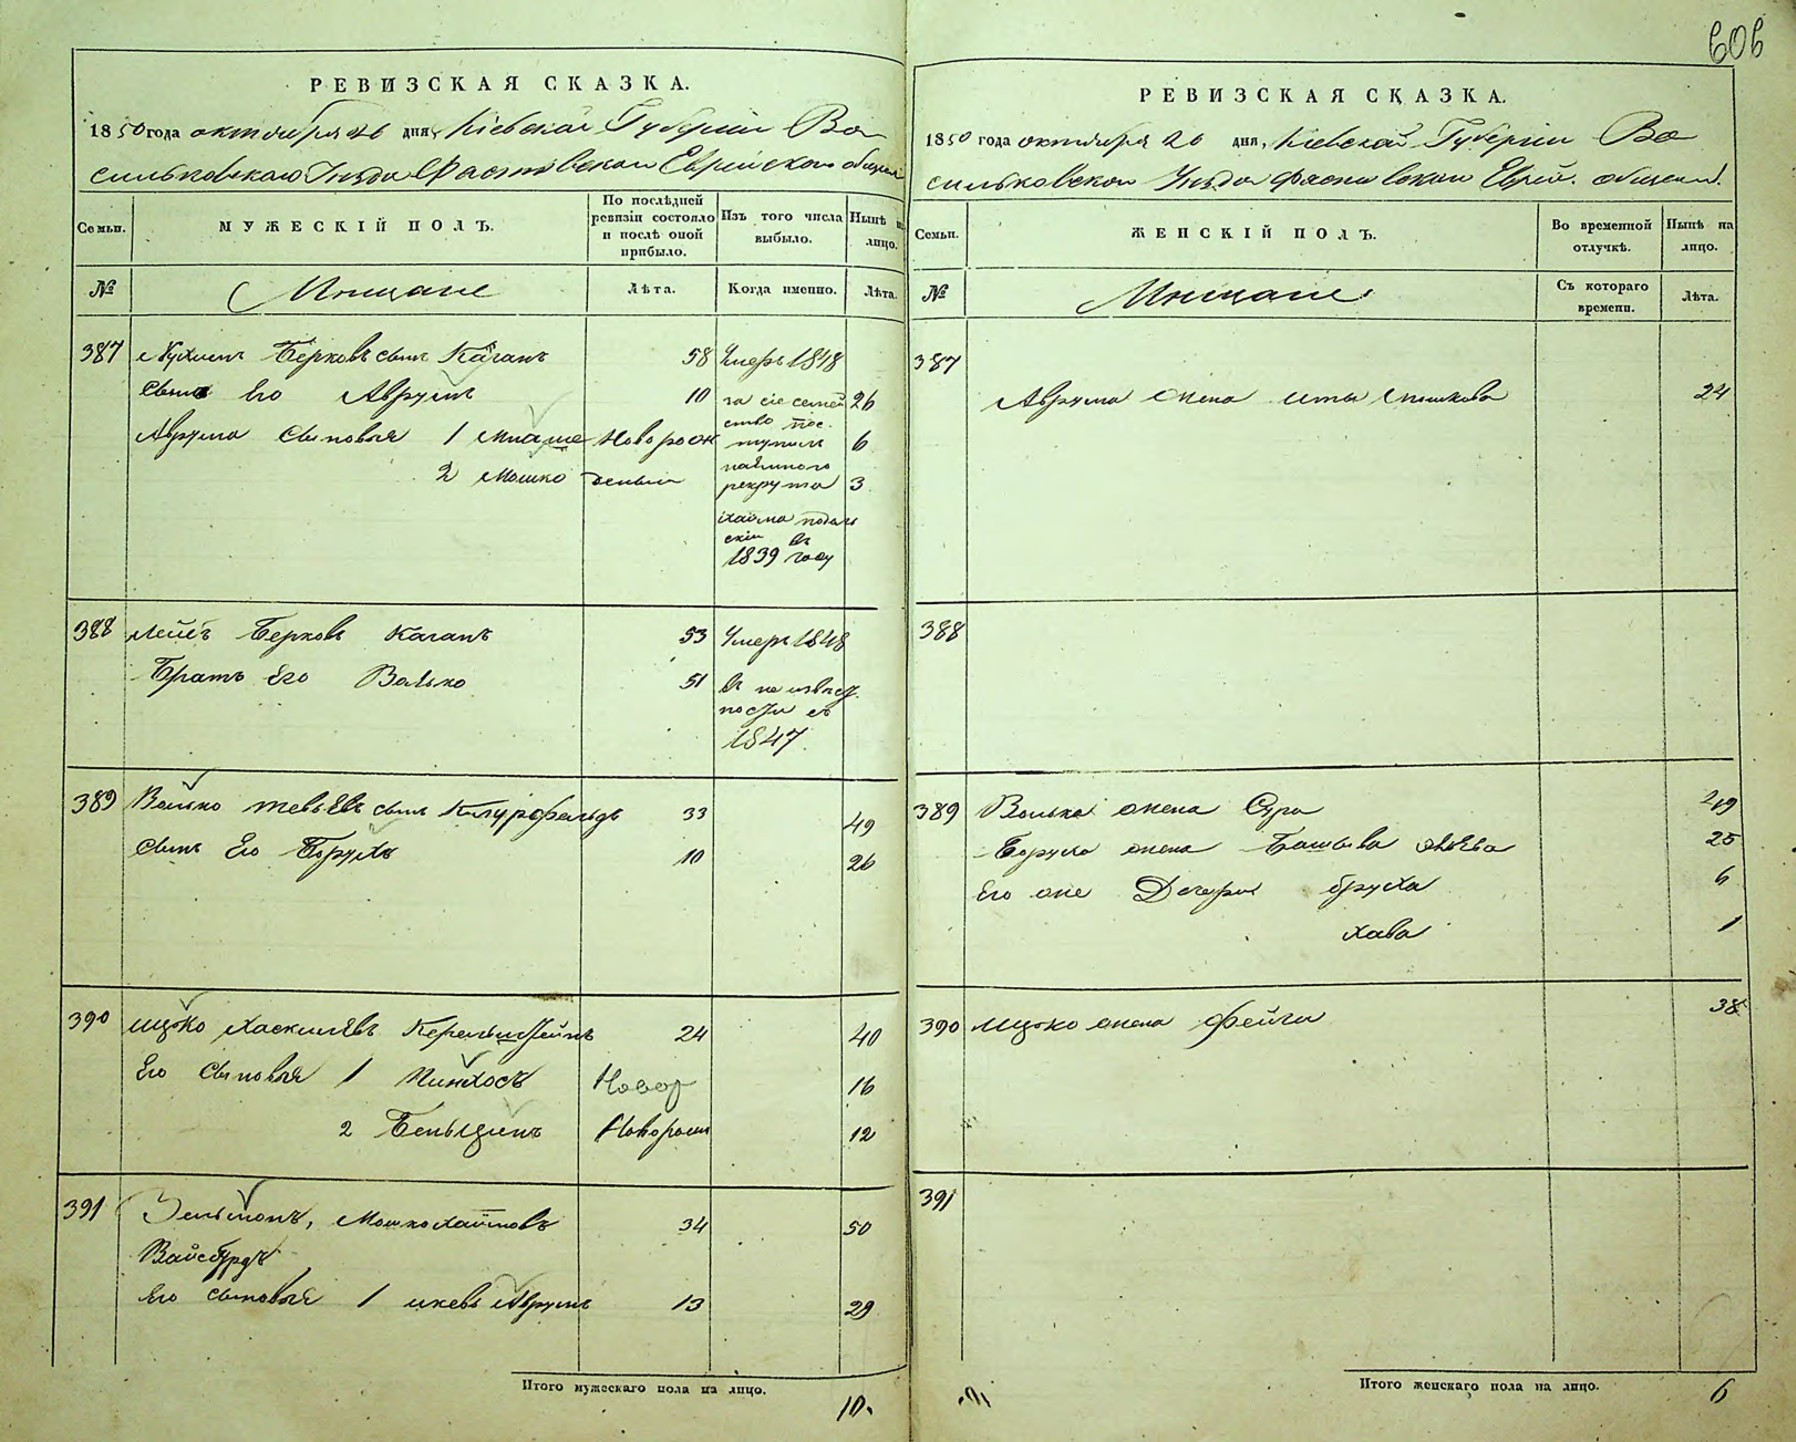 606
РЕВИЗСКАЯ СКАЗКА.
1850 года октября 26 дня, Кіевской Губерніи Ва
сильковскаго Уѣзда Фастовской Еврейской
Семьи.
МУЖЕСКІЙ ПОЛЪ.
По послѣдней ревизіи состояло и послѣ оной прибыло.
Изъ того числа выбыло.
Нынѣ на лицо.
№
Мещане
Лѣта.
Когда именно.
Лѣта.
387 Берковъ сынъ Каганъ 58 Умеръ 1848
Сынъ Его Аврумъ 10 за сіе семей 26
ство пос
Аврума Сыновья 1 Новорож тупилъ 6
наемнаго
2 Мошко денный рекрута 3
Хаима
скій въ
1839 году
388 Лейбъ Берковъ Каганъ 53 Умеръ 1848
Братъ Его Волько 51 въ неизвѣст
ности съ
1847
389 Волько Тевьевъ сынъ 33 49
Сынъ Его Борухъ 10 26
390 Ицко Хаскилевъ 24 40
Его Сыновья 1 Пинхосъ Новор 16
2 Беньюмин Новорож 12
391 Зельманъ, Мошкохаимовъ 34 50
Вайсбурдъ
Его сыновья 1 Аврумъ 13 29
Итого мужескаго пола на лицо.
10.
РЕВИЗСКАЯ СКАЗКА.
1850 года октября 26 дня, Кіевской Губерніи Ва
сильковскои Уѣзда Фастовской Еврей.
Семьи.
ЖЕНСКІЙ ПОЛЪ.
Во временной отлучкѣ.
Нынѣ на лицо.
№
Мещане
Съ котораго времени.
Лѣта.
387
Аврума жена 24
388
389 Волька жена Сура 49
Боруха жена 25
Его же Дочери Бруха 6
Хава 1
390 Ицко жена Фейга 38
391
Итого женскаго пола на лицо.
6